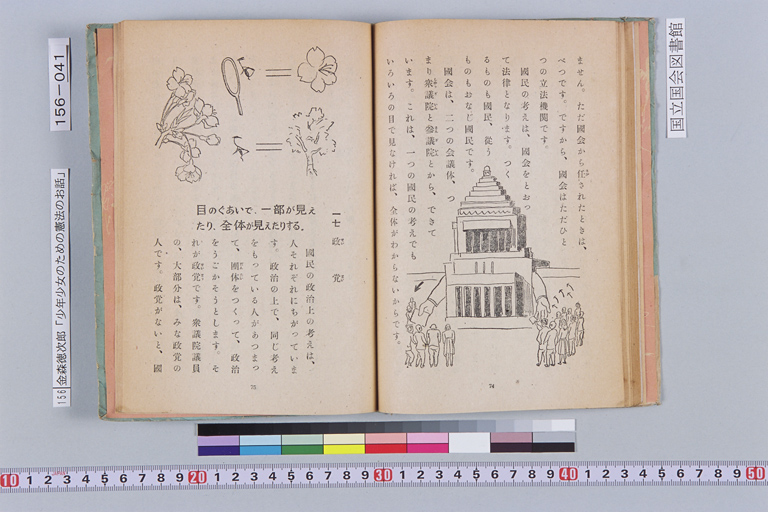 ません。ただ國会から任されたときは、
べつです。ですから、國会はただひと
つの立法機関です。
國民の考えは、國会をとおっ
て法律となります。つく
るものも國民、從う
ものもおなじ國民です。
國会は、二つの会議体、つ
まり衆議院と參議院とから、できて
います。これは、一つの國民の考えでも
いろいろの目で見なければ、全体がわからないからです。
74
目のぐあいで、一部が見え
たり、全体が見えたりする。
一七 政党
國民の政治上の考えは、
人それぞれにちがっていま
す。政治の上で、同じ考え
をもっている人があつまっ
て、團体をつくって、政治
をうごかそうとします。そ
れが政党です。衆議院議員
の、大部分は、みな政党の
人です。政党がないと、國
75
156-041
156 金森徳次郎「少年少女のための憲法のお話」
国立国会図書館
10 1 2 3 4 5 6 7 8 9 20 1 2 3 4 5 6 7 8 9 30 1 2 3 4 5 6 7 8 9 40 1 2 3 4 5 6 7 8 9 50